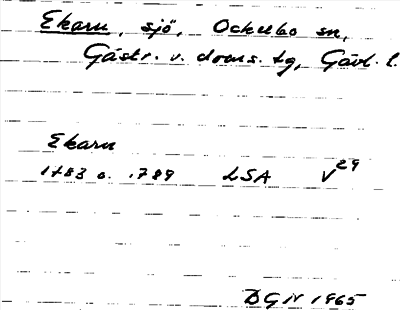 Ekarn, sjö, Ockelbo sn,
Gästr. v. doms. tg, Gävl. l.
Ekarn
1783 o. 1789 LSA V29
DGN 1965